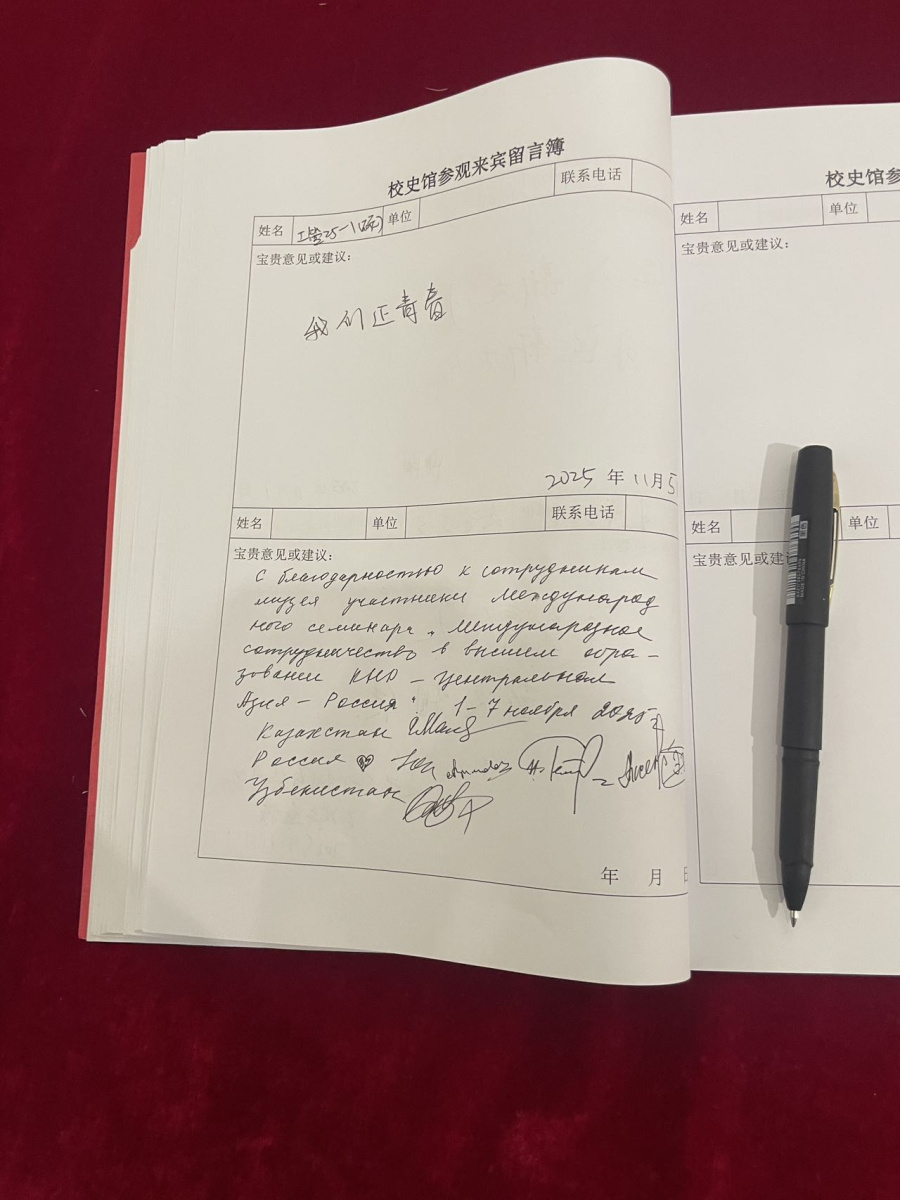 校史馆参观来宾留言簿
姓名 单位 联系电话
宝贵意见或建议：
我们正青春
2025 年 11 月 5
姓名 单位 联系电话
宝贵意见或建议：
С благодарностью к сотрудникам
музея участники Международ
ного семинара „Международное
сотрудничество в высшем обра-
зовании КНР – Центральная
Азия – Россия". 1–7 ноября 2025
Казахстан
Россия
Узбекистан
年 月
校史馆参
姓名 单位
宝贵意见或建议：
姓名 单位
宝贵意见或建议